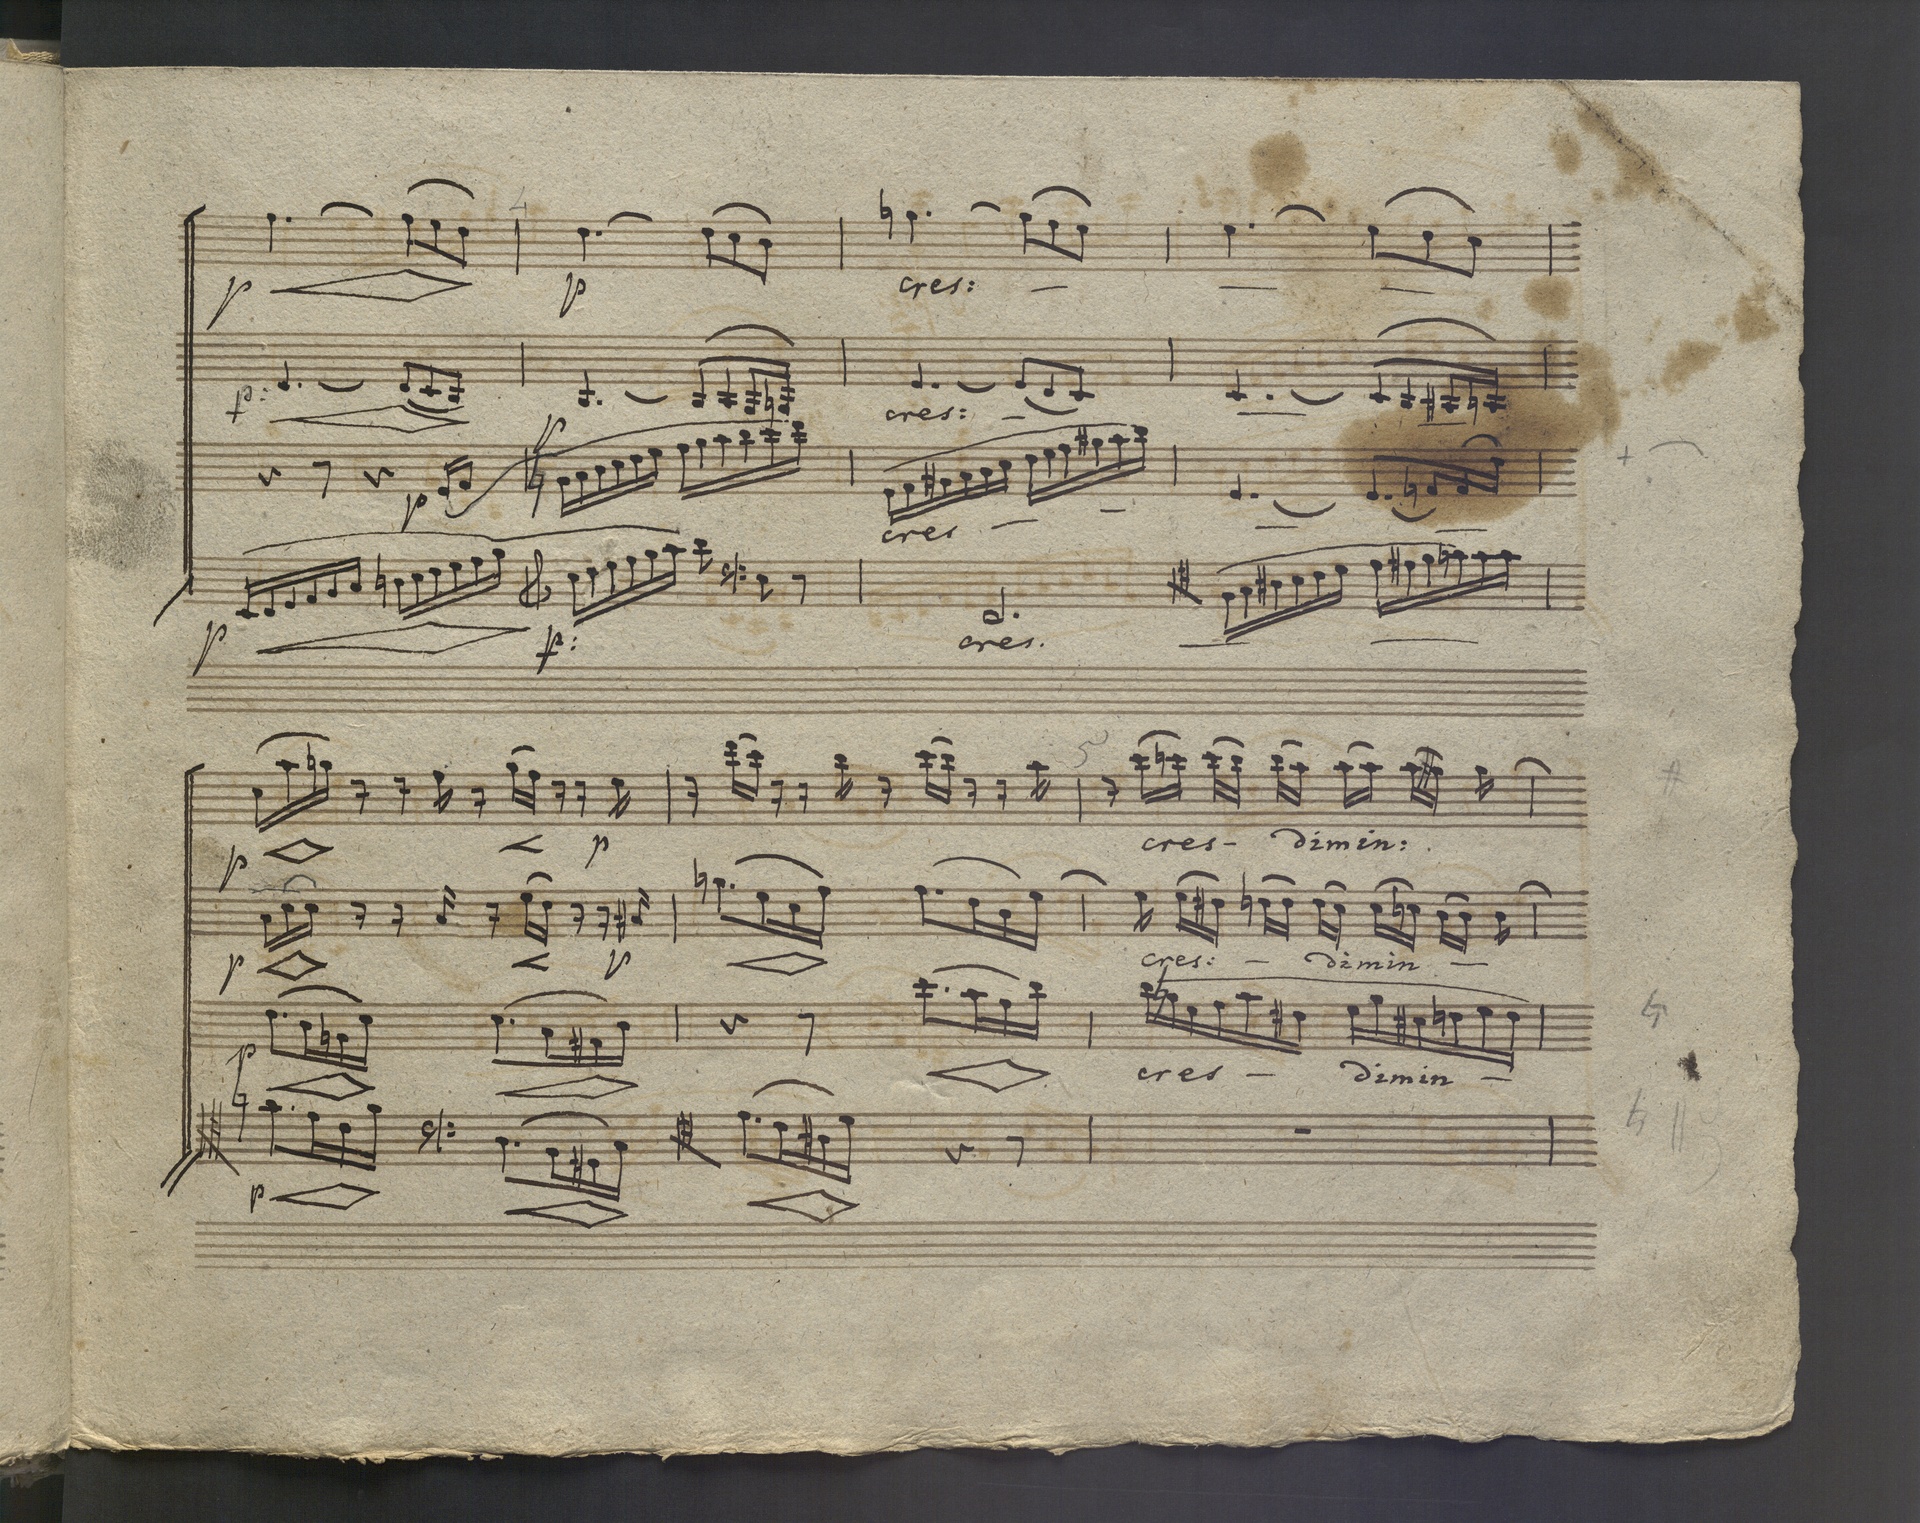 p p cres:
p: p cres:
p cres
p p: cres.
p p cres- dimin:
p p cres: - dimin -
p cres - dimin -
p